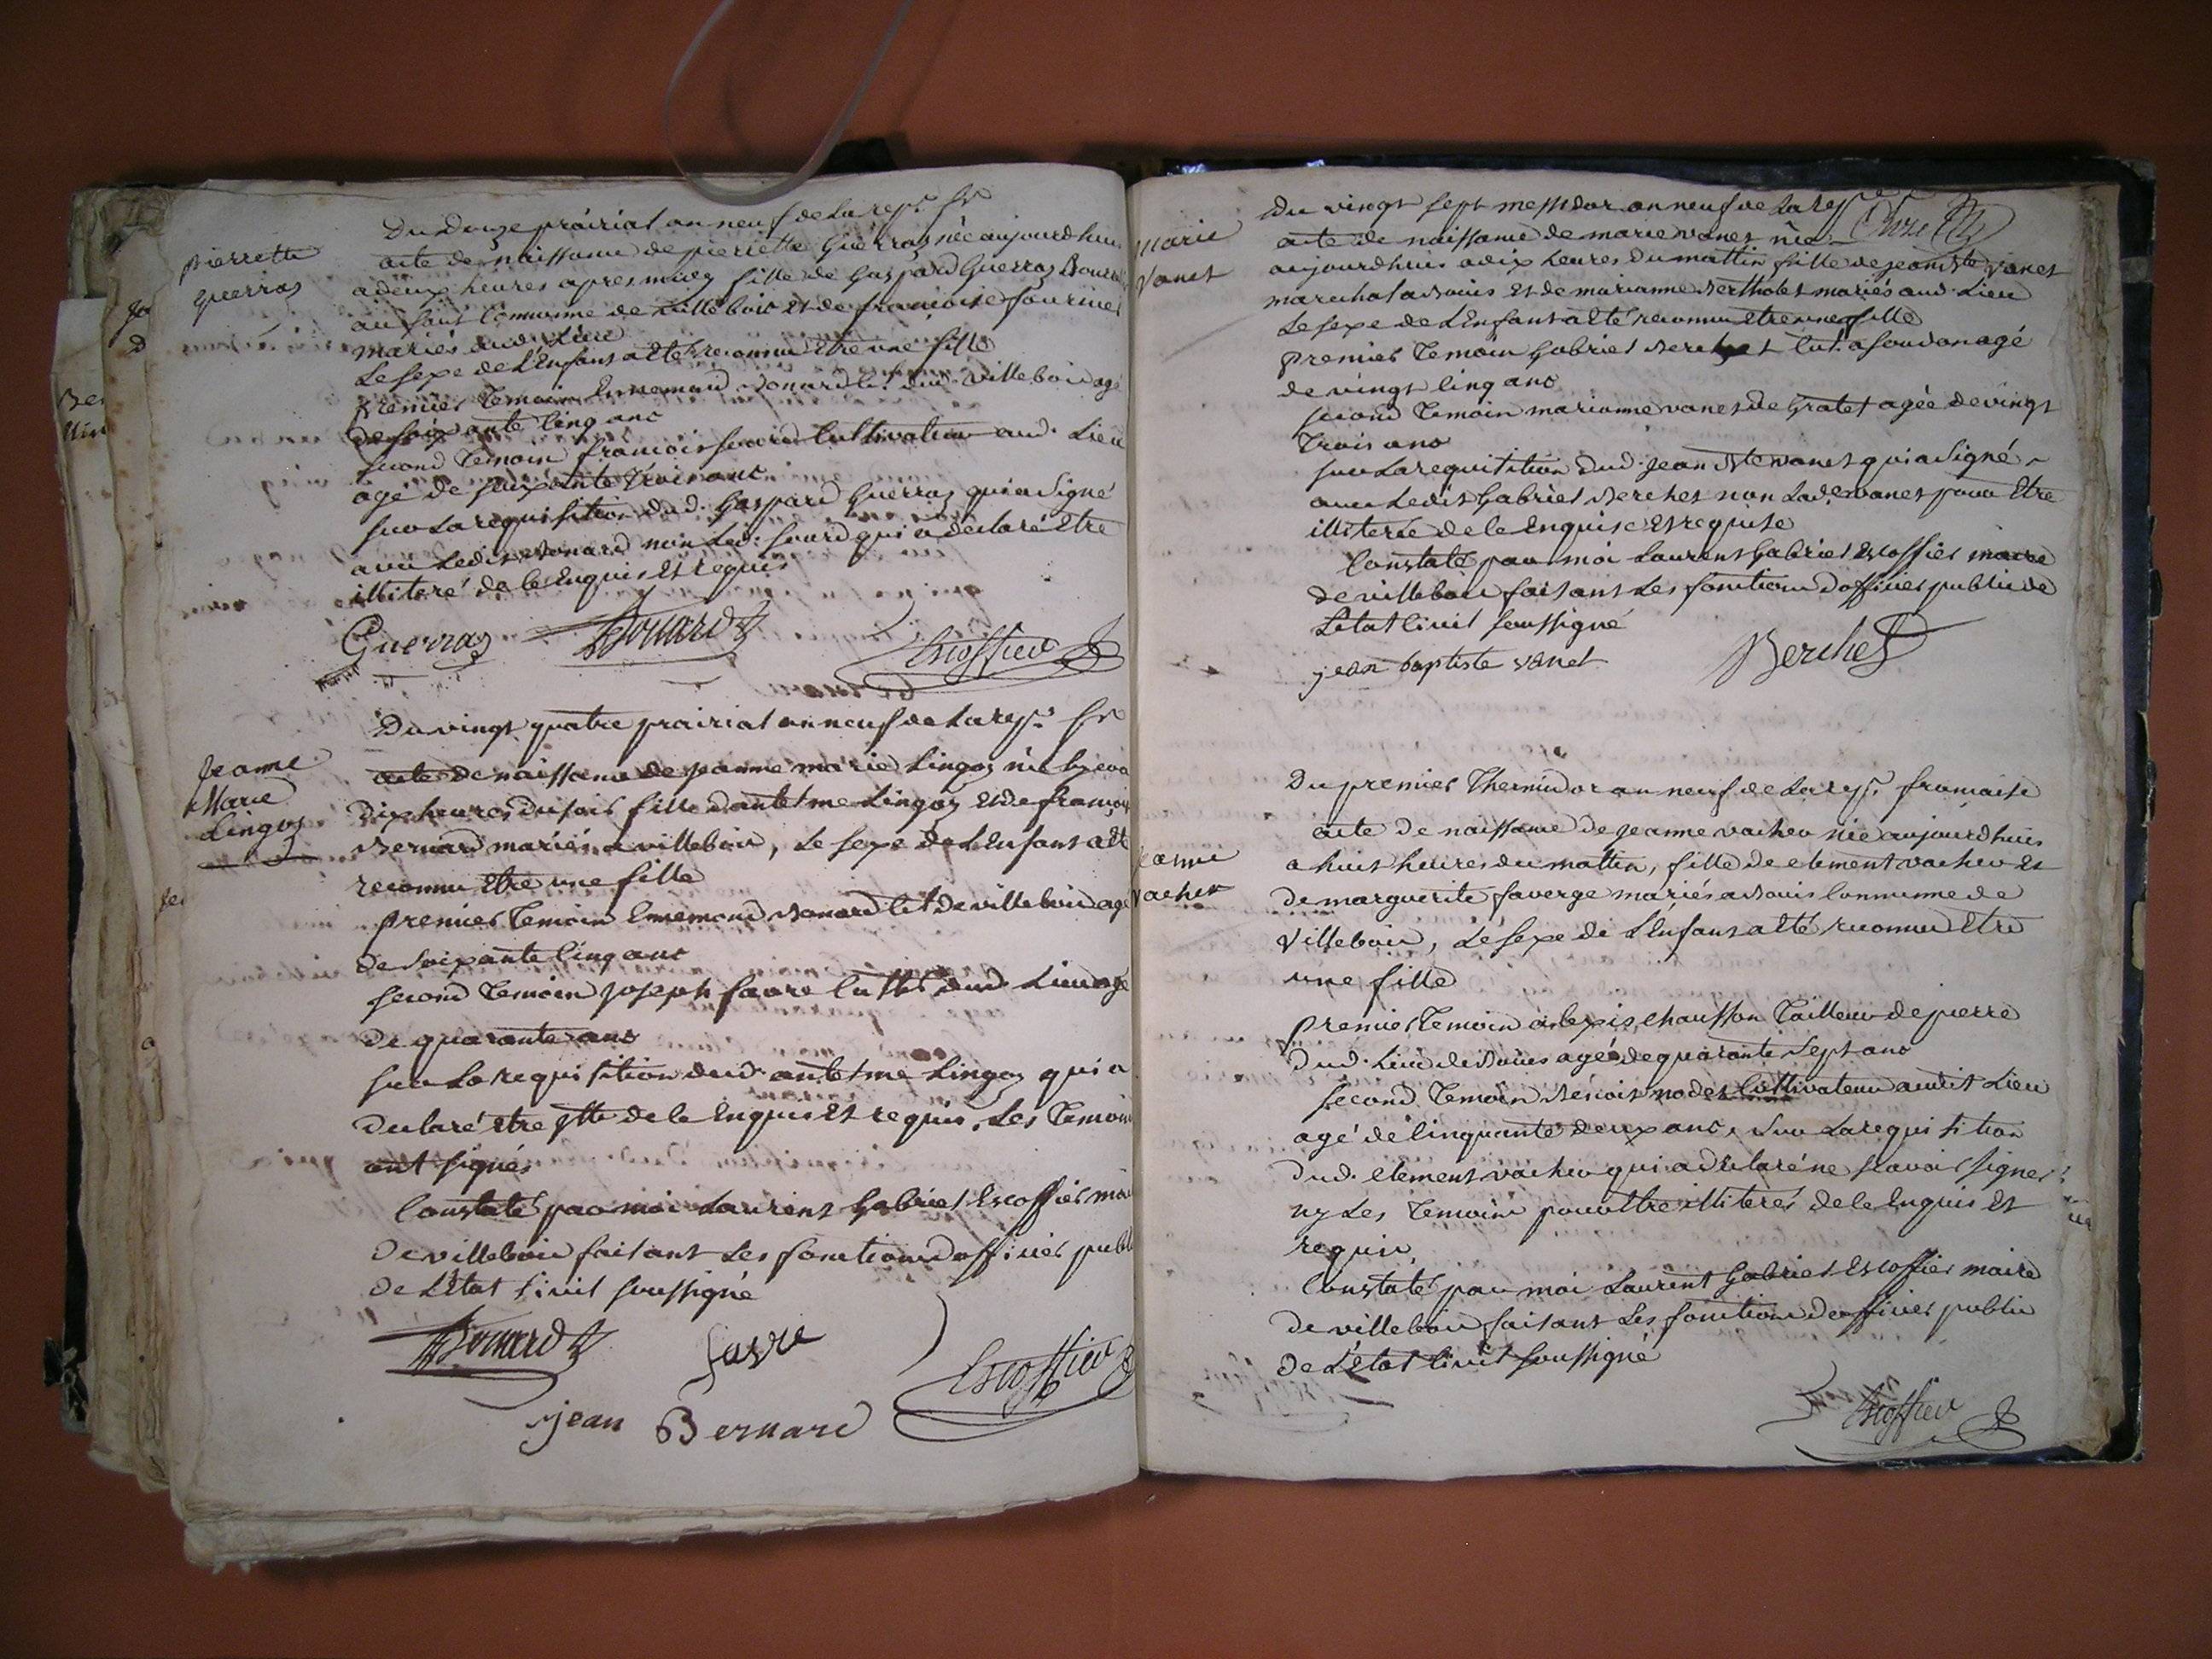 pierrette
Guerras
Du Douze prairial an neuf de la rep.e fr
acte de naissance de pierrette Guerras née aujourdhui
a deux heures apres midy fille de Gaspard Guerras
au commune de villebois et de francoise
mariés aud. Lieu
Le sexe de L'Enfant a eté reconnu Etre une fille
premier Temoin Ennemond Bonard dud. villebois agé
de soixante cinq ans
second Temoin francois cultivateur aud. Lieu
agé de soixante trois ans
sur La requisition dud. Gaspard Guerras qui a signé
avec Ledit Bonard non Led. qui a déclaré Etre
illiteré de ce Enquis Et requis
Guerras Bonard Escoffier
Jeanne
Marie
Lingoz
Du vingt quatre prairial an neuf de La rep.e fr
acte de naissance de jeanne marie Lingoz née hyer a
Dix heures du soir fille dantelme Lingoz Et de françois
Bernard mariés a villebois, Le sexe de L'Enfant a eté
reconnu Etre une fille
premier Temoin Ennemond Bonard de villebois agé
de soixante cinq ans
second Temoin joseph favre dud. Lieu agé
de quarante ans
sur La requisition dud. antelme Lingoz qui a
declaré Etre de ce Enquis Et requis, Les Temoins
ont signés
Constaté par moi Laurent Gabriel Escoffier mai
De villebois faisant Les fonctions dofficier publ
de L'Etat Civil soussigné
Bonard favre Escoffier
jean Bernard
Marie
Vanet
Du vingt sept messidor an neuf de La rep
acte de naissance de marie vanet née
aujourdhuis a dix heures du mattin fille de jean Bte vanet
marechal a Bouis Et de marianne Bertholet mariés aud. Lieu
Le sexe de L'Enfant a eté reconnu Etre une fille
premier Temoin Gabriel Berchet agé
de vingt cinq ans
second Temoin marianne vanet de agée de vingt
Trois ans
sur La requisition dud. jean Bte vanet qui a signé
avec Ledit Gabriel Berchet non Lad. vanet pour Etre
illiterée de ce Enquise Et requise
Constaté par moi Laurent Gabriel Escoffier maire
de villebois faisant Les fonctions dofficier public de
L'Etat Civil soussigné
jean baptiste vanet Berchet
Jeanne
Vacher
Du premier Thermidor an neuf de La rep.e francaise
acte de naissance de jeanne vacher née aujourdhuis
a huit heures du mattin, fille de clement vacher Et
de marguerite faverge mariés a Bouis Commune de
Villebois, Le sexe de L'Enfant a eté reconnu Etre
une fille
premier Temoin alexis chausson Tailleur de pierre
dud. Lieu de Bouis agé de quarante Sept ans
second Temoin Benoit modet Cultivateur audit Lieu
agé de Cinquante deux ans, Sur La requisition
dud. clement vacher qui a déclaré ne scavoir signer
ny Les Temoins pour Etre illiterés de ce Enquis Et
requis
Constaté par moi Laurent Gabriel Escoffier maire
de villebois faisant Les fonctions dofficier public
de L'Etat Civil soussigné
Escoffier